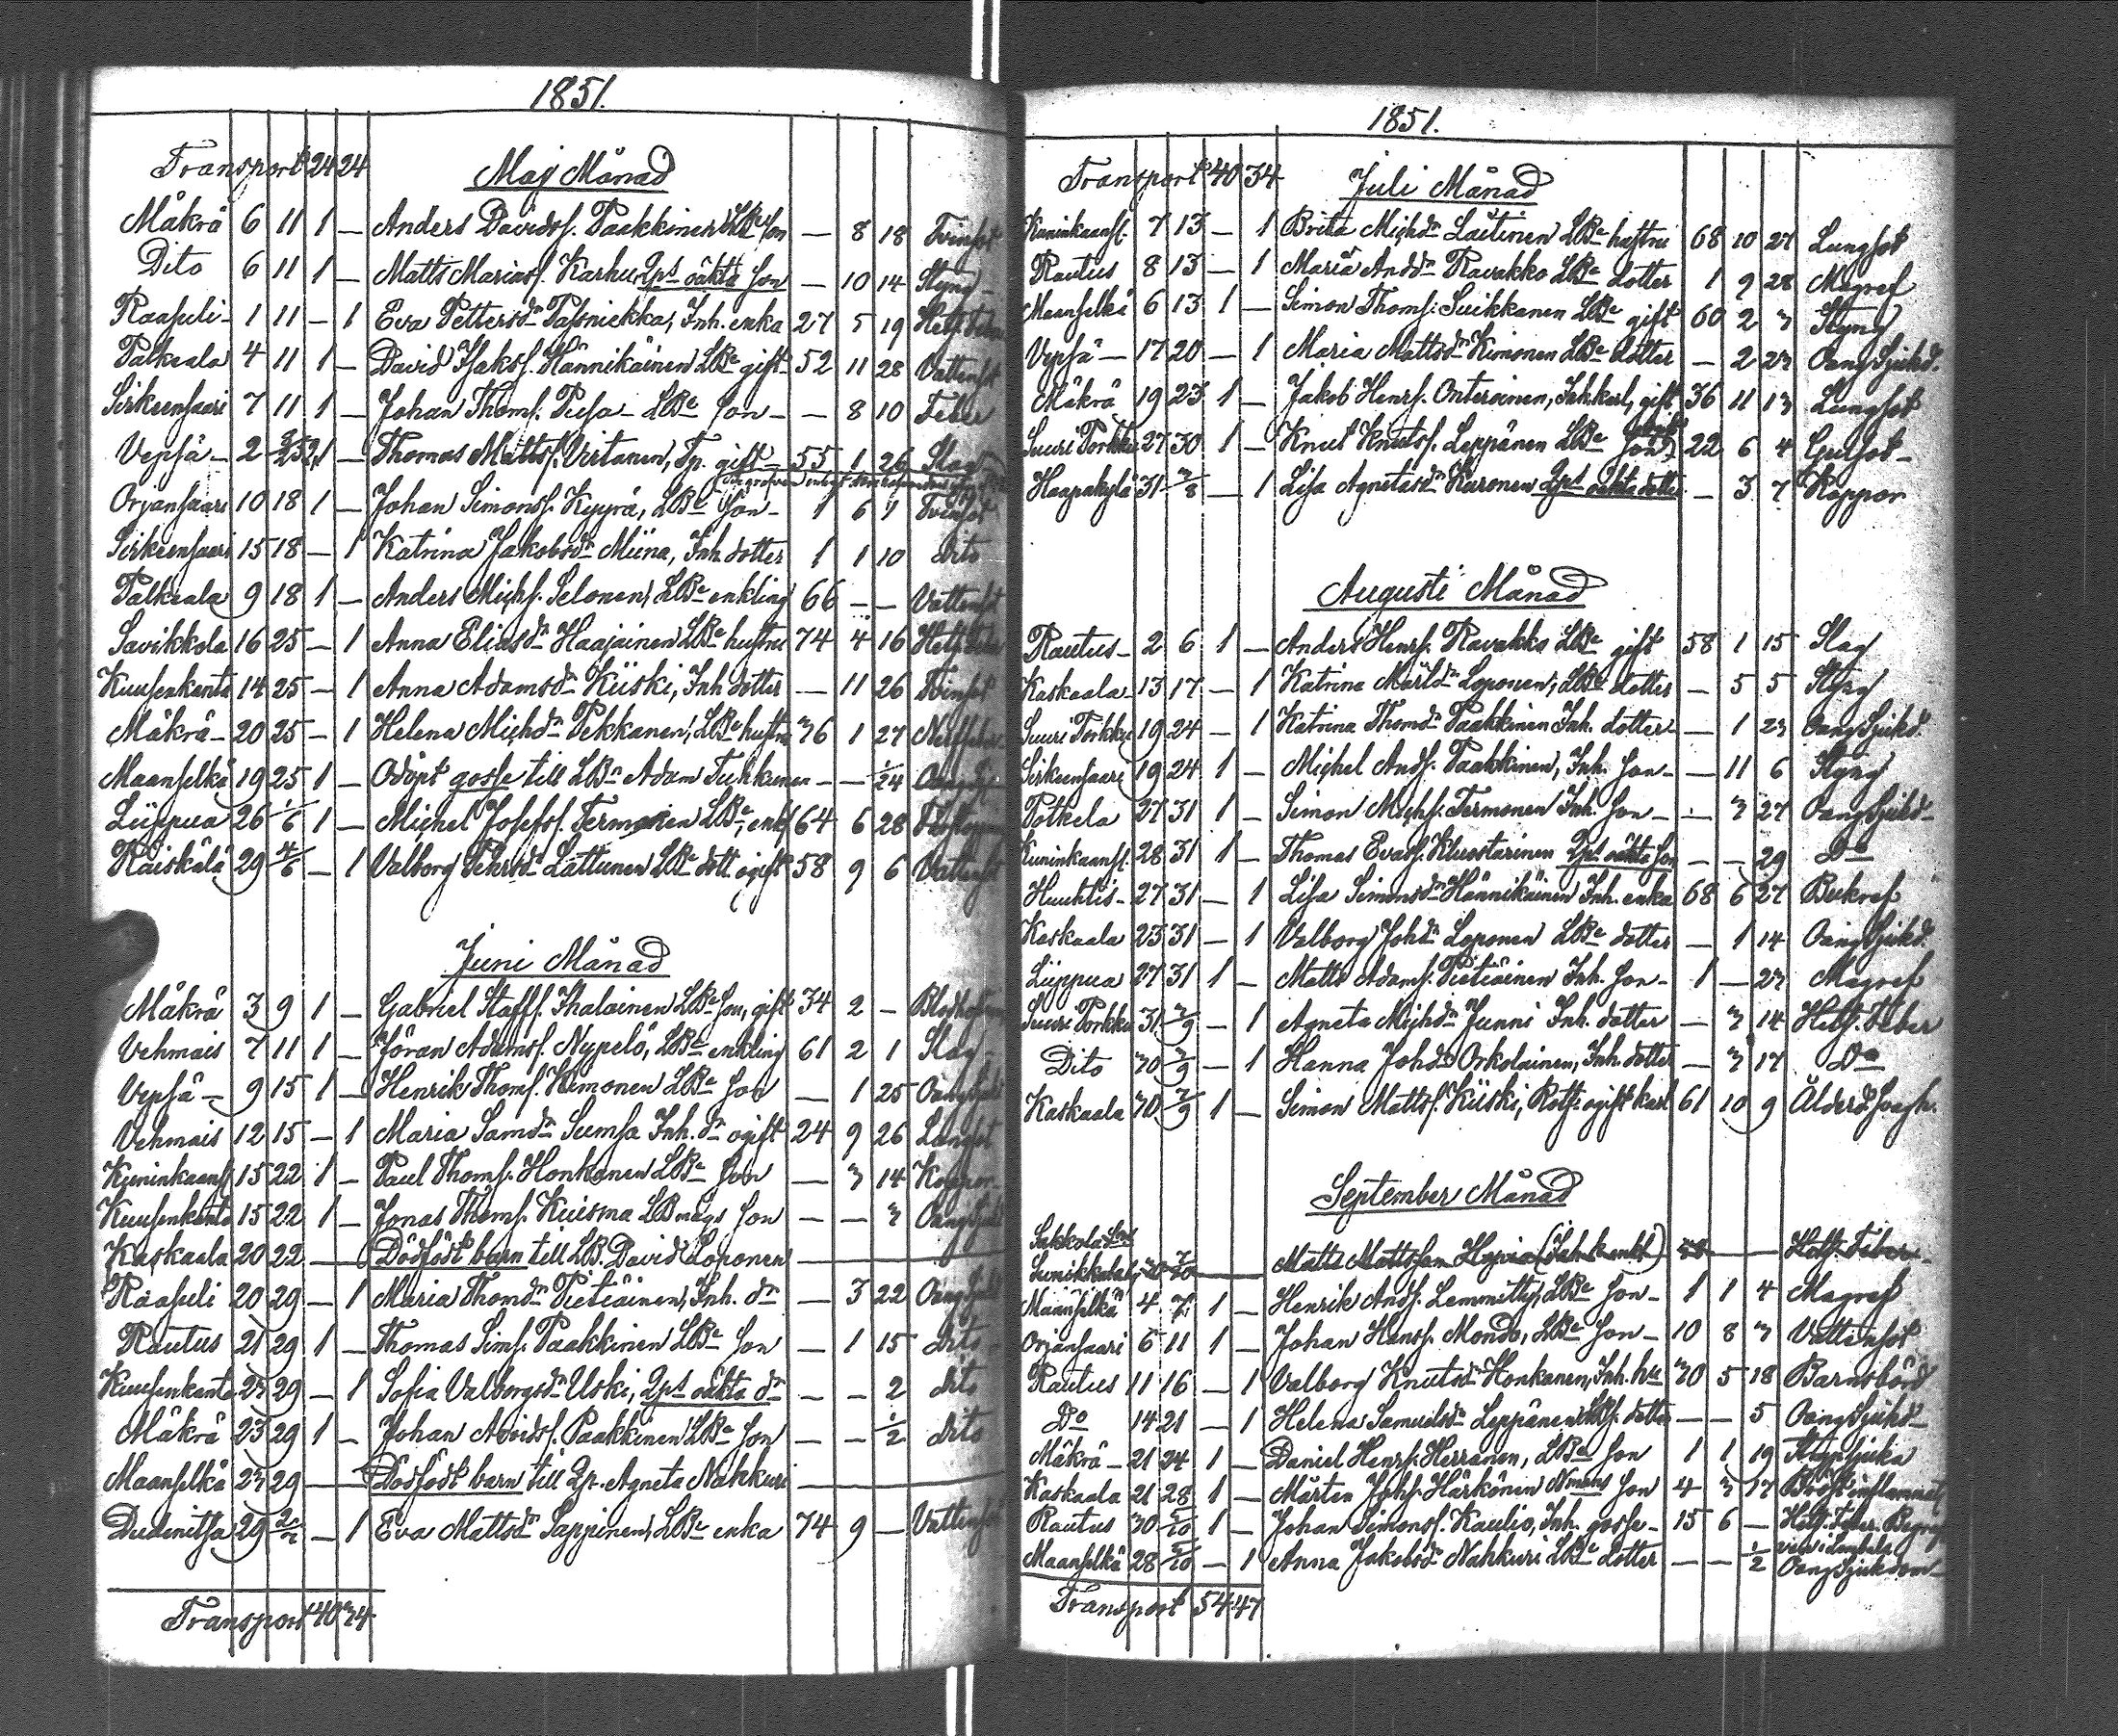 1851.
Transport 24 24 Maj Månad
Mäkrä 6 11 1 — Anders Davidss. Paakkinen LBe son — 8 18 Tvinsot
Dito 6 11 1 — Matts Mariass. Karhu Qps oäkta son — 10 14 Styng
Raasuli 1 11 — 1 Eva Pettersdr Inh. enka 27 5 19 Hets. Feber
Palkeala 4 11 1 — David Isakss. Hännikäinen LBe gift 52 11 28 Vattensot
Sirkeensaari 7 11 1 — Johan Thoms. Pusa LBe son — 8 10 Feber
Vepsä 2 1 — Thomas Mattss. Virtanen, Tp. gift 55 1 26 Slag
Orjansaari 10 18 1 — Johan Simonss. Kyyrä, LBe son 1 6 7 Tvinsot
Sirkeensaari 15 18 — 1 Katrina Jakobsdr Miina, Inh dotter 1 1 10 dito
Palkeala 9 18 1 — Anders Michs. Selonen, LBe enkling 66 — — Vattensot
Savikkola 16 25 — 1 Anna Eliasdr Haajainen LBe hustru 74 4 16 Hets. Feber
Kuusenkanta 14 25 — 1 Anna Adamsdr Kiiski, Inh dotter — 11 26 Tvinsot
Mäkrä 20 25 — 1 Helena Michdr Pekkanen, LBe hustru 36 1 27 Nerffeber
Maanselkä 19 25 1 — Odöpt gosse till LBn Adam Tuhkunen — — 1/24
Liippua 26 1/6 1 — Michel Josefss. Termonen LBe, enkl 64 6 28
Räiskälä 29 4/6 — 1 Valborg Pehrsdr Lattunen LBe dott ogift 58 9 6 Vattensot
Juni Månad
Mäkrä 3 9 1 — Gabriel Staffs. Ihalainen LBe son, gift 34 2 —
Vehmais 7 11 1 — Jöran Adamss. Nypelö, LBe enkling 61 2 1 Slag
Vepsä 9 15 1 — Henrik Thoms. Kimonen LBe son — 1 25 Oangsjukd
Vehmais 12 15 — 1 Maria Samdr Sumsa Inh. dr ogift 24 9 26 Lungsot
Kuninkaans. 15 22 1 — Paul Thoms. Honkanen LBe son — 3 14 Koppor
Kuusenkanta 15 22 1 — Jonas Thoms. Kuisma LB mågs son — — 3 Oangsjukd
Kaskaala 20 22 — Dödfödt barn till LB. David Loponen
Raasuli 20 29 — 1 Maria Thomdr Pietiäinen, Inh. dr — 3 22 Oangsjukd
Rautus 21 29 1 — Thomas Sims. Paakkinen LBe son — 1 15 dito
Kuusenkanta 23 29 — 1 Sofia Valborgsdr Uski, Qps oäkta dr — — 2 dito
Mäkrä 23 29 1 — Johan Davidss. Paakkinen LBe son — — 1/2 dito
Maanselkä 23 29 — Dödfödt barn till Qp. Agneta Nahkuri
Dudenitsa 29 2/7 — 1 Eva Mattsdr Sappinen, LBe enka 74 9 — Vattensot
Transport 40 34
1851.
Transport 40 34 Juli Månad
Kuninkaans. 7 13 — 1 Brita Michdr Laitinen LBe hustru 68 10 27 Lungsot
Rautus 8 13 — 1 Maria Anddr Ravakko LBe dotter 1 9 28 Magref
Maanselkä 6 13 1 — Simon Thoms. Suikkanen LBe gift 60 2 3 Styng
Vepsä — 17 20 — 1 Maria Mattsdr Kimonen LBe dotter — 2 23 Oangsjukd.
Mäkrä 19 23 1 — Jakob Henrs. Onteroinen, Inh karl, gift 36 11 13 Lungsot
Suuri Porkku 27 30 1 — Knut Knutss. Leppänen LBe son, ogift 22 6 4 Gulsot
Haapakylä 31 3/8 — 1 Lisa Agnetasdr Karonen Qps oäkta dotter — 3 7 Koppor
Augusti Månad
Rautus 2 6 1 — Anders Henrs. Ravakko LBe gift 58 1 15 Slag
Kaskaala 13 17 — 1 Katrina Mårtdr Loponen, LBe dotter — 5 5 Styng
Suuri Porkku 19 24 — 1 Katrina Thomdr Paakkinen Inh. dotter — 1 23 Oangsjukd.
Sirkeensaari 19 24 1 — Michel Ands. Paakkinen, Inh. son — 11 6 Styng
Potkela 27 31 1 — Simon Michs. Termonen Inh. son — 3 27 Oangsjukd
Kuninkaans. 28 31 1 — Thomas Evass. Kluostarinen Qps oäkta son — — 29 Do
Huuhtis 27 31 — 1 Lisa Simonsdr Hännikäinen Inh. enka 68 6 27 Bukref
Kaskaala 23 31 — 1 Valborg Johdr Loponen LBe dotter — 1 14 Oangsjukd.
Liippua 27 31 1 — Matts Adams. Pietiäinen Inh. son 1 — 23 Magref
Suuri Porkku 31 3/9 — 1 Agneta Michdr Junni Inh. dotter — 3 14 Hets. Feber
Dito 30 3/9 — 1 Hanna Johdr Orkolainen, Inh. dotter — 3 17 Do
Kaskaala 30 7/9 1 — Simon Mattss. Kiiski, Rotf. ogift karl 61 10 9 Ålderd.svagh.
September Månad
Sakkola Sn
Matts Mattsson Hyvia (Inh. k. enkl) Hets. Feber
Maanselkä 4 7 1 — Henrik Ands. Lemmitty, LBe son 1 1 4 Magref
Orjansaari 6 11 1 — Johan Hanss. Mondo, LBe son 10 8 3 Vattensot
Rautus 11 16 — 1 Valborg Knutsdr Honkanen, Inh. hu 30 5 18 Barnsbörd
Do 14 21 — 1 Helena Samuelsdr Leppänen LBs. dotter — — 5 Oangsjukd
Mäkrä 21 24 1 — Daniel Henrs. Herranen, LBe son 1 1 19
Kaskaala 21 28 1 — Mårten Johs. Härkönen Nmans son 4 3 17 Bröst inflammat.
Rautus 30 5/10 1 — Johan Simonss. Kaulio, Inh. gosse 15 6 — Hets. Feber. Begrof
Maanselkä 28 5/10 — 1 Anna Jakobsdr Nahkuri LBe dotter — — 1/2 Oangsjukdom
Transport 54 47